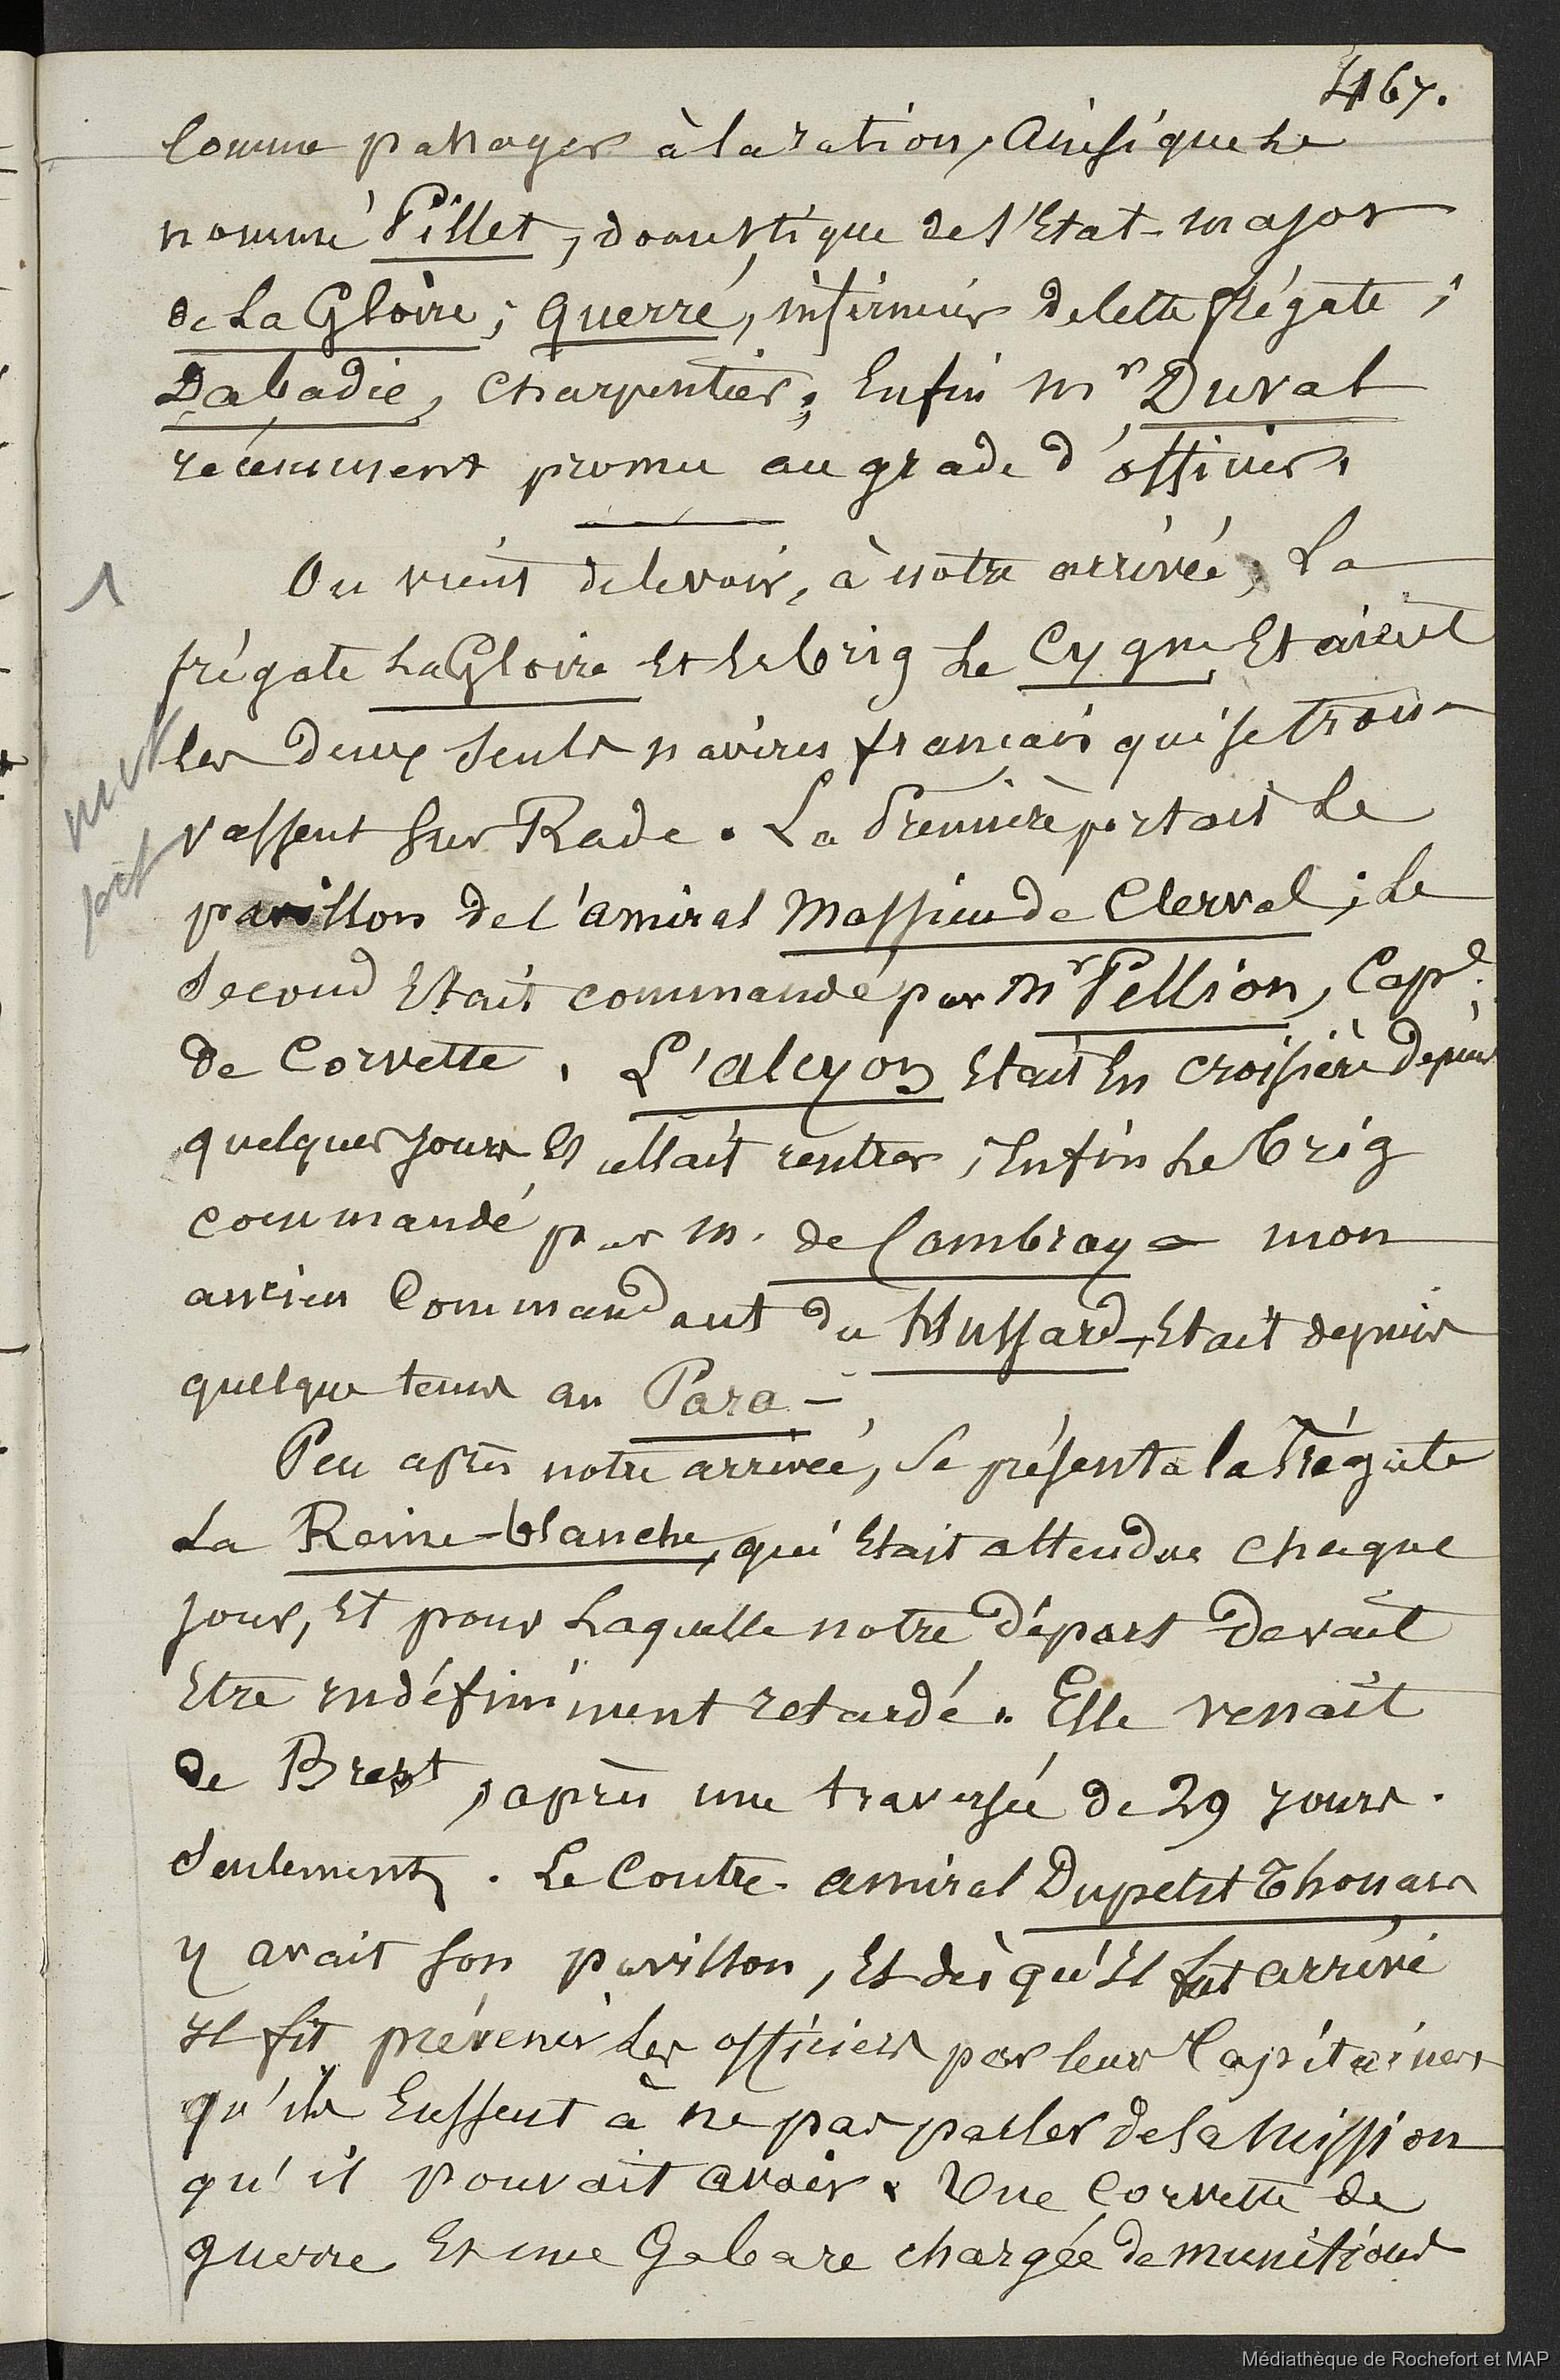 467.
Comme passager à la ration, Ainsi que Le
nommé Pillet, domestique de l'Etat-major
de La Gloire; Querré, infirmier de cette frégate;
Dabadie, Charpentier; Enfin Mr Duval
récemment promu au grade d'officier.
On vient de le voir, à notre arrivée, La
frégate La Gloire Et Le brig Le Cygne, Etaient
les deux seuls navires français qui se trou-
vassent sur Rade. La Première portait Le
pavillon de l'amiral Massieu de Clerval; Le
second Etait commandé par Mr Pellion, Cape
de Corvette. L'alcyon Etait En croisière depuis
quelques jours Et allait rentrer; Enfin Le brig
commandé par M. de Cambray - mon
ancien Commandant du Hussard -, Etait depuis
quelque tems au Para -
Peu après notre arrivée, se présenta la Frégate
La Reine-blanche, qui Etait attendue chaque
jour, Et pour Laquelle notre départ devait
Etre indéfiniment retardé. Elle venait
de Brest, après une traversée de 29 jours.
seulement. Le Contre-amiral Dupetit Thouars
y avait son pavillon, Et dès qu'Il fut arrivé
Il fit prévenir Les officiers par leurs Capitaines
qu'ils Eussent à ne pas parler de la Mission
qu'il pouvait avoir. Une Corvette de
guerre Et une Gabare chargée de munitions